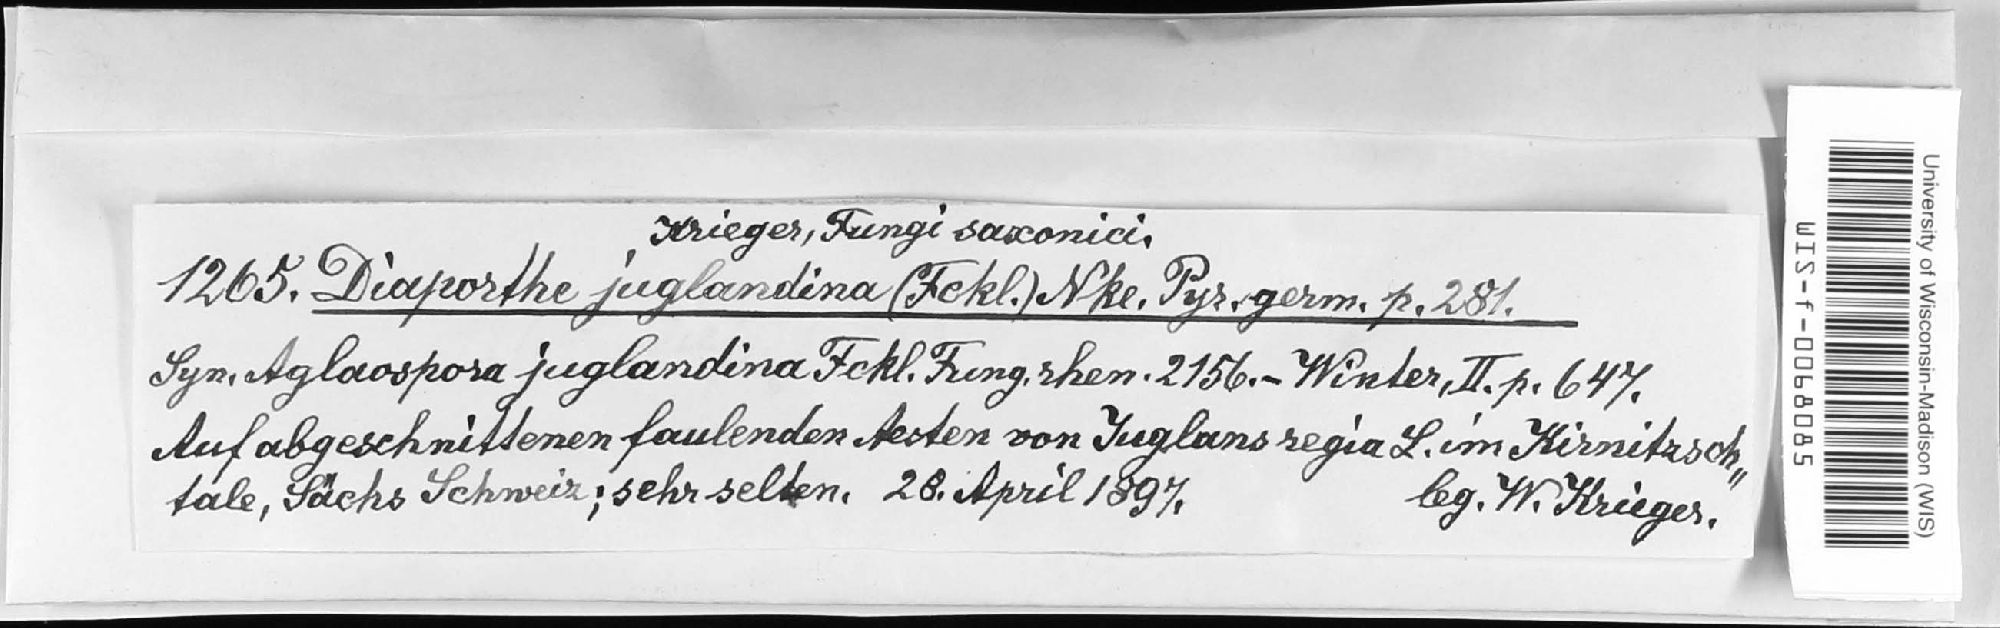 Krieger, Fungi saxonici.
1265. Diaporthe juglandina (Fckl.) Nke. Pyr. germ. p. 281.
Syn. Aglaospora juglandina Fckl. Fung. rhen. 2156. - Winter, II. p. 647.
Auf abgeschnittenen faulenden Aesten von Juglans regia L. im Kirnitzsch„
tale, Sächs Schweiz; sehr selten. 28. April 1897. leg. W. Krieger.
University of Wisconsin-Madison (WIS)
WIS-f-0068085